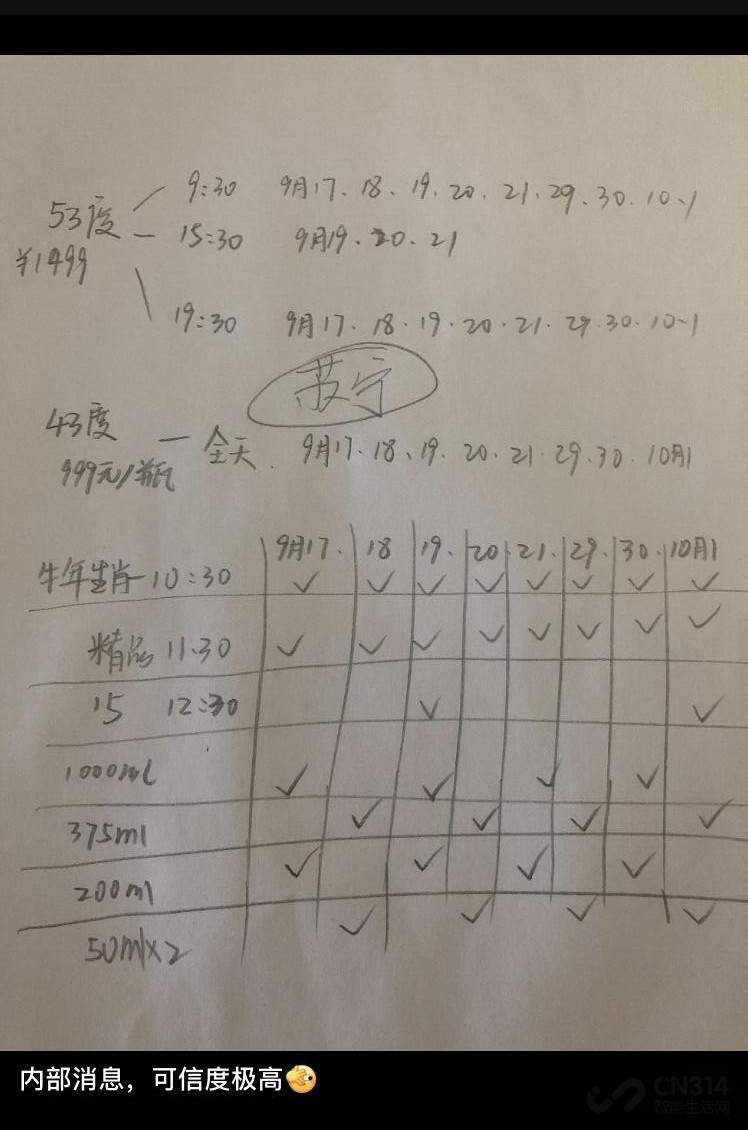 53度
¥1499
9:30 9月17、18、19、20、21、29、30、10、1
15:30 9月19、20、21
19:30 9月17、18、19、20、21、29、30、10、1
苏宁
43度
999元/瓶
全天 9月17、18、19、20、21、29、30、10月1
9月17 18 19 20 21 29 30 10月1
牛年生肖 10:30 ✓ ✓ ✓ ✓ ✓ ✓ ✓ ✓
精品 11:30 ✓ ✓ ✓ ✓ ✓ ✓ ✓ ✓
15 12:30 ✓ ✓
1000ml ✓ ✓ ✓ ✓
375ml ✓ ✓ ✓ ✓
200ml ✓ ✓ ✓ ✓
50ml×2 ✓ ✓ ✓ ✓
内部消息，可信度极高
CN314
智能生活网